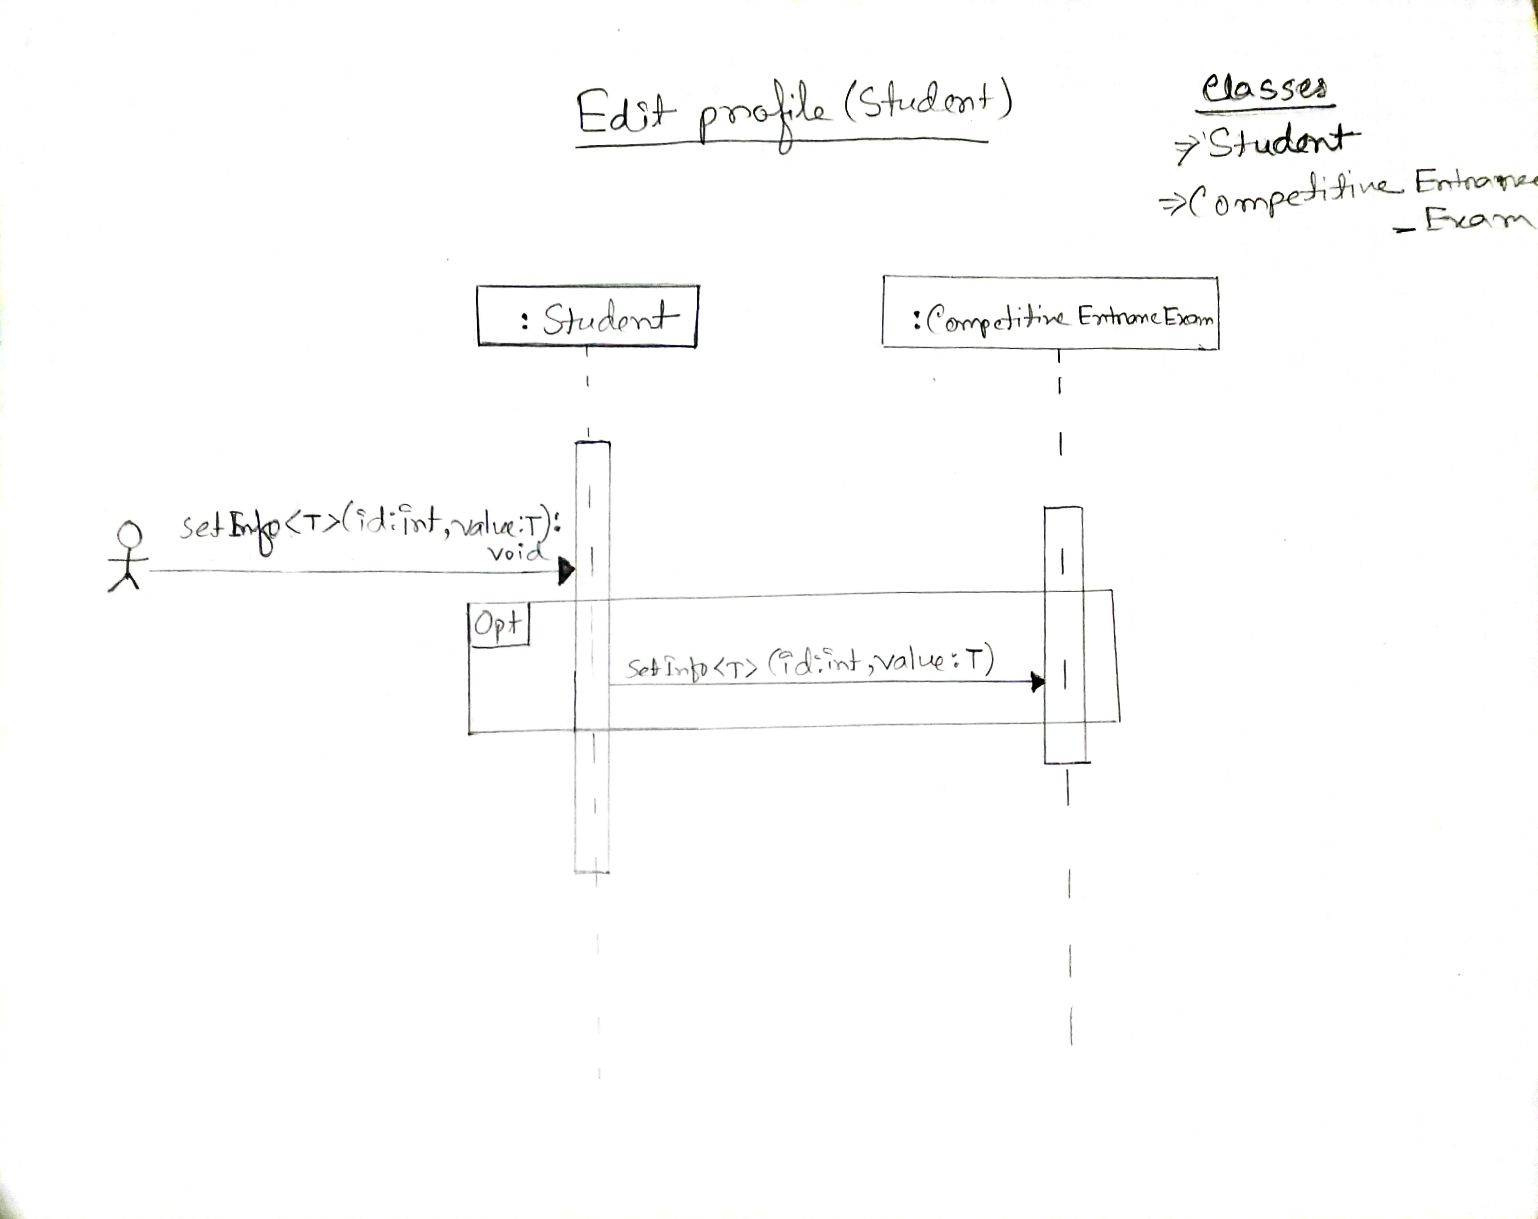 Edit profile (Student)
Classes
⇒ Student
⇒ Competitive Entrance
- Exam
: Student
: Competitive Entrance Exam
setInfo<T>(id:int, value:T):
void
Opt
setInfo<T> (id:int, value:T)